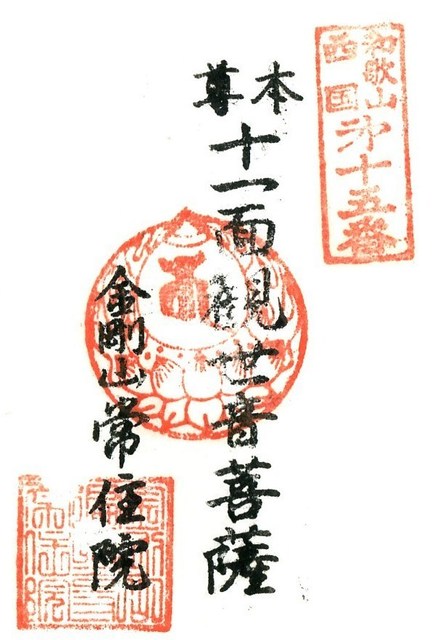 和歌山
西国
第十五番
本尊
十一面観世音菩薩
金剛山常住院